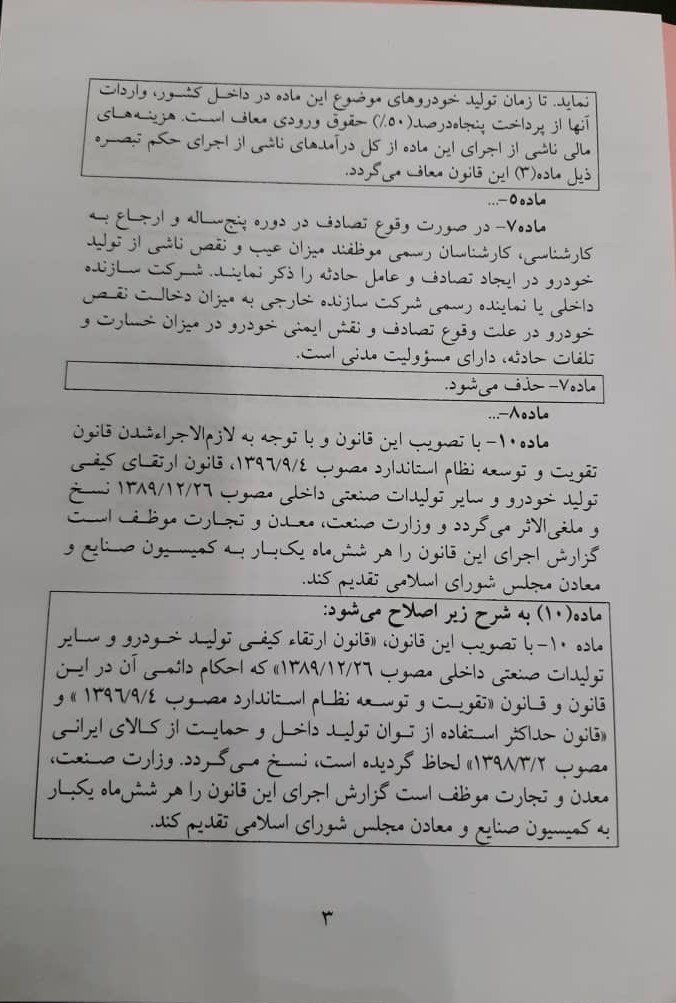 نماید. تا زمان تولید خودروهای موضوع این ماده در داخل کشور، واردات
آنها از پرداخت پنجاه‌درصد(۵۰٪) حقوق ورودی معاف است. هزینه‌های
مالی ناشی از اجرای این ماده از کل درآمدهای ناشی از اجرای حکم تبصره
ذیل ماده(۳) این قانون معاف می‌گردد.
ماده۵-...
ماده۷- در صورت وقوع تصادف در دوره پنج‌ساله و ارجاع به
کارشناسی، کارشناسان رسمی موظفند میزان عیب و نقص ناشی از تولید
خودرو در ایجاد تصادف و عامل حادثه را ذکر نمایند. شرکت سازنده
داخلی یا نماینده رسمی شرکت سازنده خارجی به میزان دخالت نقص
خودرو در علت وقوع تصادف و نقش ایمنی خودرو در میزان خسارت و
تلفات حادثه، دارای مسؤولیت مدنی است.
ماده۷- حذف می‌شود.
ماده۸-...
ماده۱۰- با تصویب این قانون و با توجه به لازم‌الاجراءشدن قانون
تقویت و توسعه نظام استاندارد مصوب ۱۳۹۶/۹/٤، قانون ارتقای کیفی
تولید خودرو و سایر تولیدات صنعتی داخلی مصوب ۱۳۸۹/۱۲/۲۶ نسخ
و ملغی‌الاثر می‌گردد و وزارت صنعت، معدن و تجارت موظف است
گزارش اجرای این قانون را هر شش‌ماه یک‌بار به کمیسیون صنایع و
معادن مجلس شورای اسلامی تقدیم کند.
ماده(۱۰) به شرح زیر اصلاح می‌شود:
ماده ۱۰- با تصویب این قانون، «قانون ارتقاء کیفی تولید خودرو و سایر
تولیدات صنعتی داخلی مصوب ۱۳۸۹/۱۲/۲۶» که احکام دائمی آن در این
قانون و قانون «تقویت و توسعه نظام استاندارد مصوب ۱۳۹۶/۹/٤ » و
«قانون حداکثر استفاده از توان تولید داخل و حمایت از کالای ایرانی
مصوب ۱۳۹۸/۳/۲» لحاظ گردیده است، نسخ می‌گردد. وزارت صنعت،
معدن و تجارت موظف است گزارش اجرای این قانون را هر شش‌ماه یکبار
به کمیسیون صنایع و معادن مجلس شورای اسلامی تقدیم کند.
۳